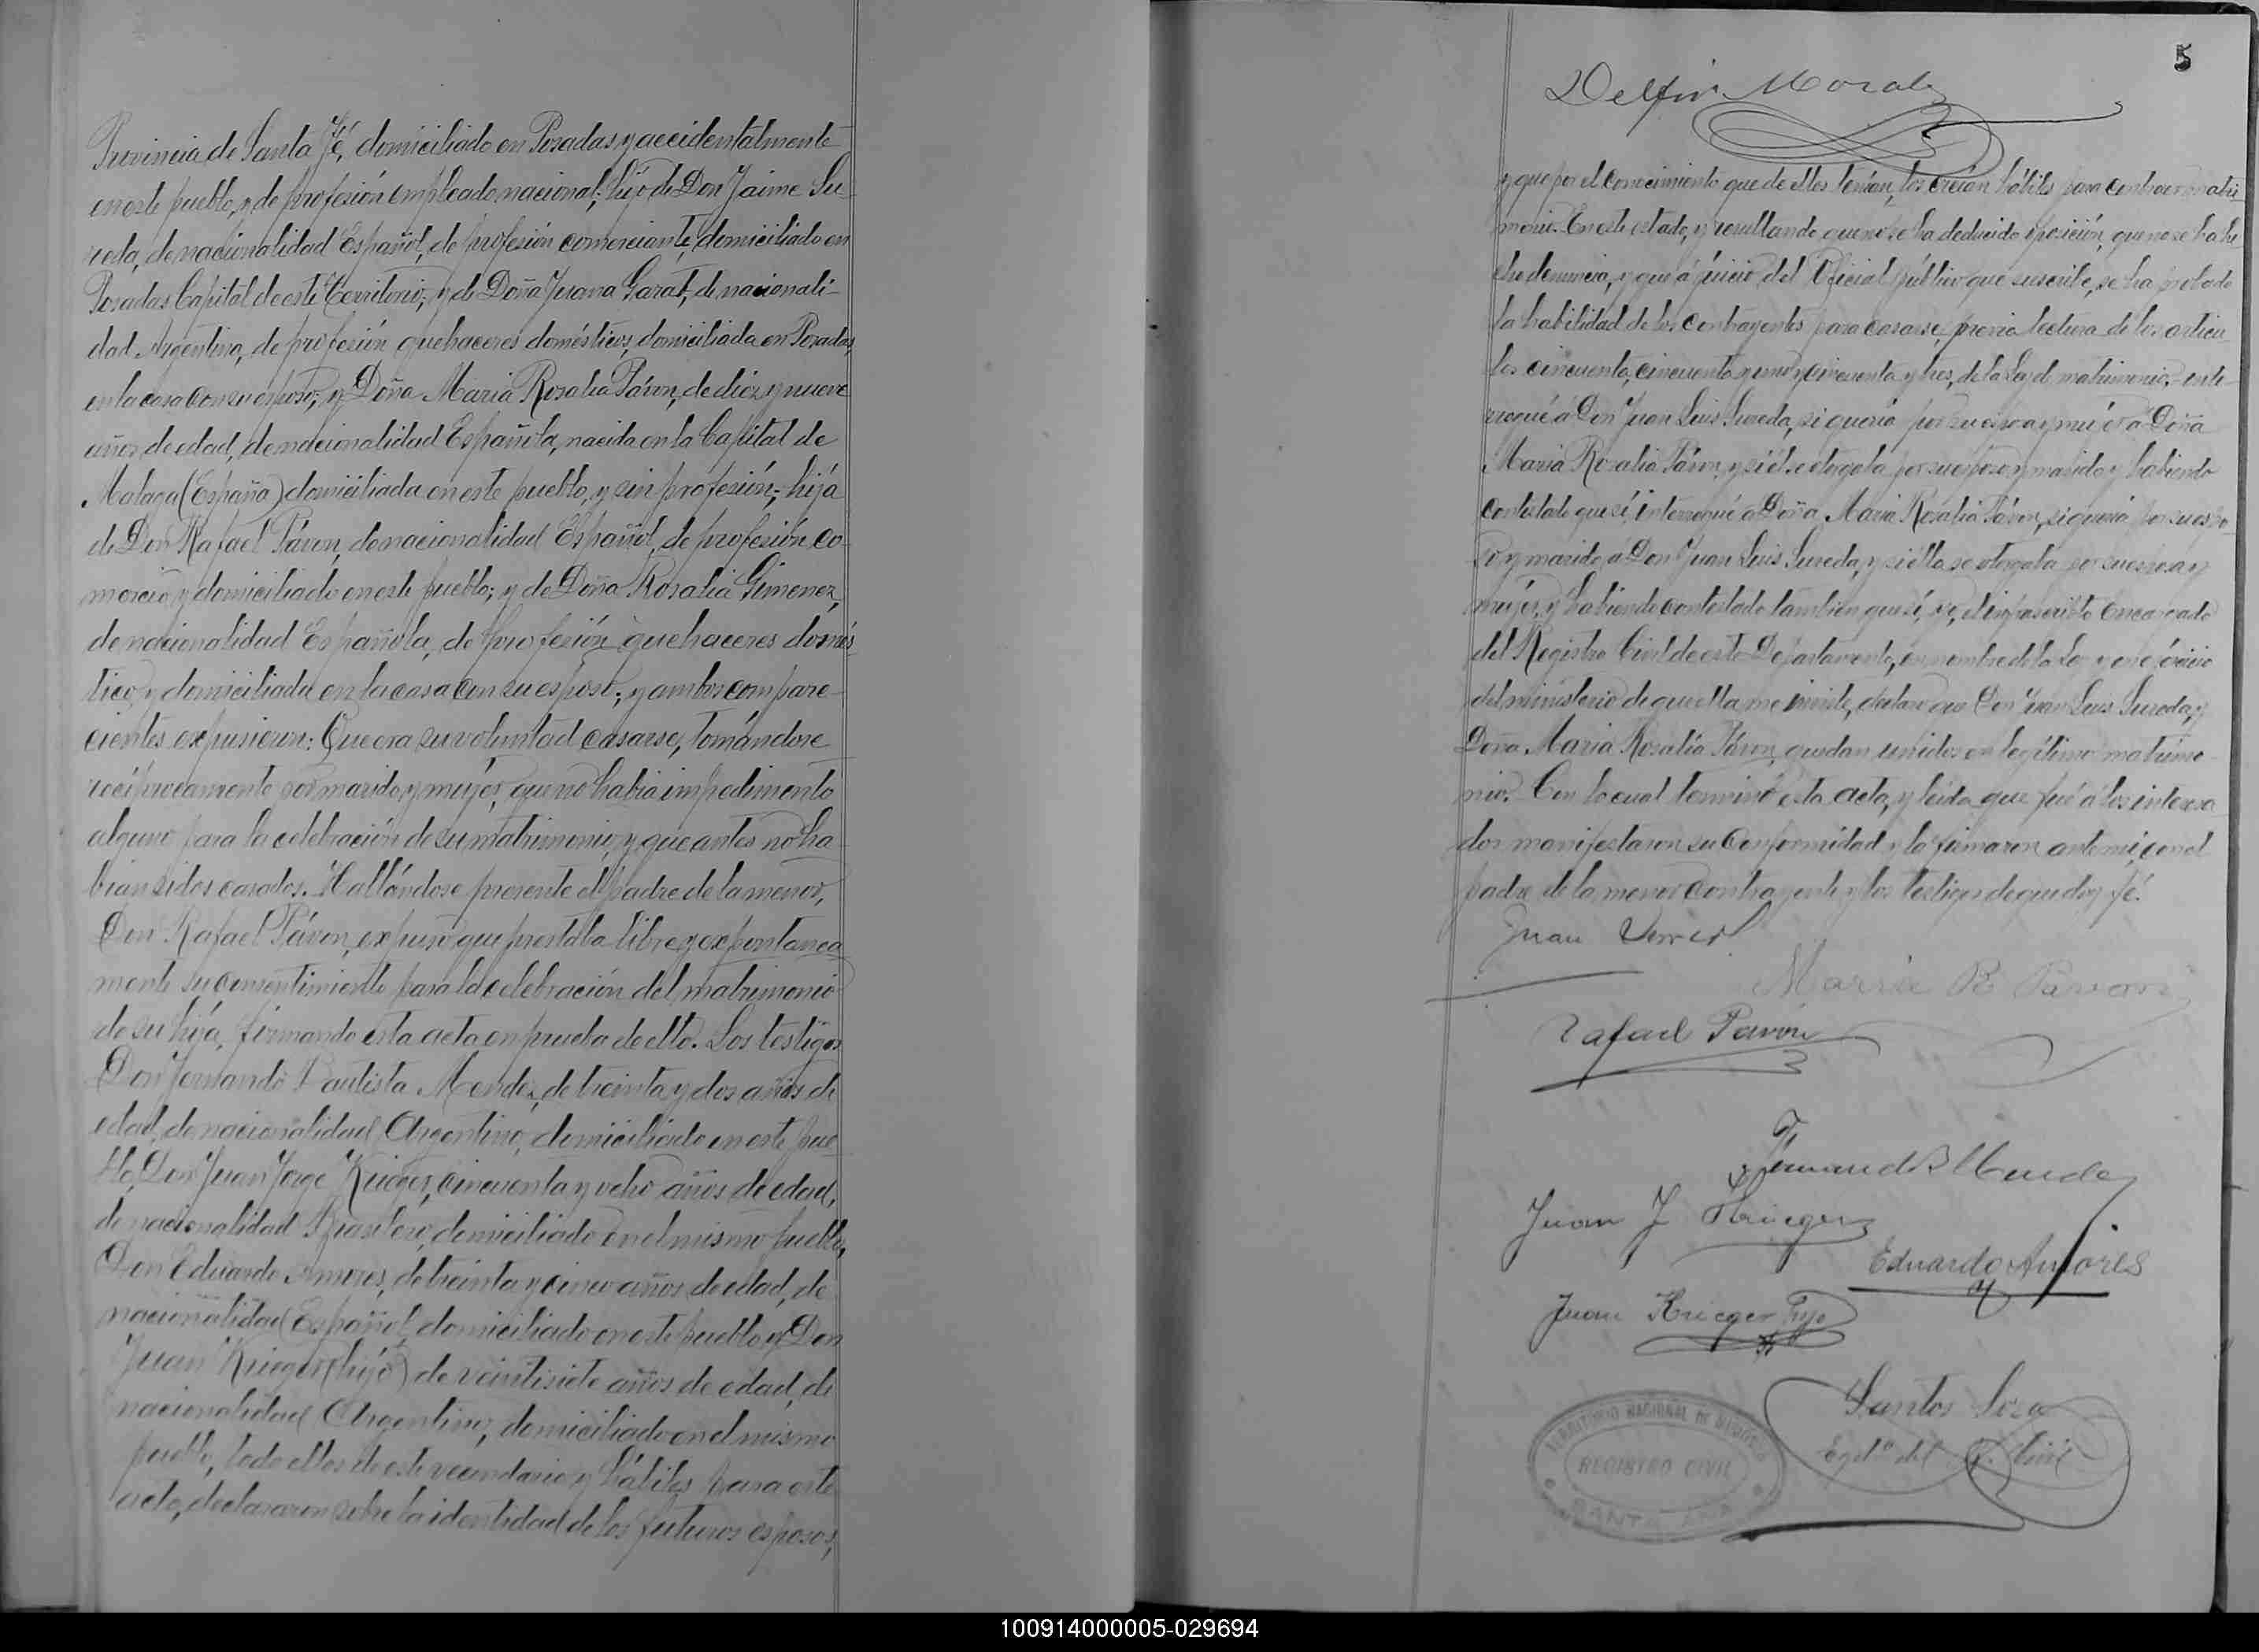 Provincia de Santa Fé, domiciliado en Posadas y accidentalmente
en este pueblo, y de profesión empleado nacional; hijo de Don Jaime Su-
reda, de nacionalidad Español, de profesión comerciante, domiciliado en
Posadas Capital de este Territorio; y de Doña Juana Garat, de nacionali-
dad Argentina, de profesión quehaceres domésticos, domiciliada en Posadas,
en la casa con su esposo; y Doña Maria Rosalia Pávon, de diez y nueve
años de edad, de nacionalidad Española, nacida en la Capital de
Malaga (España) domiciliada en este pueblo, y sin profesión; hija
de Don Rafael Pávon, de nacionalidad Español, de profesión co-
mercio y domiciliado en este pueblo; y de Doña Rosalia Gimenez,
de nacionalidad Española, de profesión quehaceres domés-
tico, y domiciliada en la casa con su esposo; y ambos compare-
cientes expusieron: Que era su voluntad casarse, tomándose
recíprocamente por marido y mujér, que no habia impedimento
alguno para la celebración de su matrimonio, y que antes no ha-
bian sidos casados. Hallándose presente el padre de la menor,
Don Rafael Pávon, expuso que prestaba libre y expontanea
mente su consentimiento para la celebración del matrimonio
de su hija, firmando esta acta en prueba de ello. Los testigos
Don Fernando Bautista Mendez, de treinta y dos años de
edad, de nacionalidad Argentino, domiciliado en este pue-
blo, Don Juan Jorge Krieger, cincuenta y ocho años de edad,
de nacionalidad Brasilero, domiciliado en el mismo pueblo,
Don Eduardo Amores, de treinta y cinco años de edad, de
nacionalidad Español, domiciliado en este pueblo y Don
Juan Krieger (hijo) de veintisiete años de edad, de
nacionalidad Argentino, domiciliado en el mismo
pueblo, todo ellos de este vecindario y hábiles para este
acto, declararon sobre la identidad de los futuros esposos,
5
Delfin Morales
y que por el conocimiento que de ellos tenian, los creían hábiles para contraer matri
monio. En este estado, y resultando que no se ha deducido oposición, que no se ha he
cho denuncia, y que á juicio del Oficial público que suscribe, se ha probado
la habilidad de los contrayentes para casarse, previa lectura de los articu
los cincuenta, cincuenta y uno y cincuenta y tres, de la Ley de matrimonio, inte-
rrogué á Don Juan Luis Sureda, si queria por su esposa y mujér á Doña
Maria Rosalia Pávon, y si él se otorgaba por su esposo y marido y habiendo
contestado que sí, interrogué á Doña Maria Rosalia Pávon, si queria por su espo-
so y marido, á Don Juan Luis Sureda, y si ella se otorgaba por su esposa y
mujér, y habiendo contestado tambien que sí, yo, el infrascripto Encargado
del Registro Civil de este Departamento, en nombre de la Ley y en ejércicio
del ministerio de que ella me inviste, declaro que Don Juan Luis Sureda, y
Doña Maria Rosalia Pávon, quedan unidos en legítimo matrimo-
nio. Con lo cual terminó esta acta, y leida que fué á los interesa
dos manifestaron su conformidad y la firmaron ante mi, con el
padre de la menor contrayente y los testigos de que doy fé.
Juan
Maria R Pavon
Rafael Pavon
Fernando B Mendez
Juan J Krieger
Eduardo Amores
Juan Krieger hijo
Santos Loza
Egdo del R. Civil
TERRITORIO NACIONAL DE MISIONES
REGISTRO CIVIL
SANTA ANA
100914000005-029694